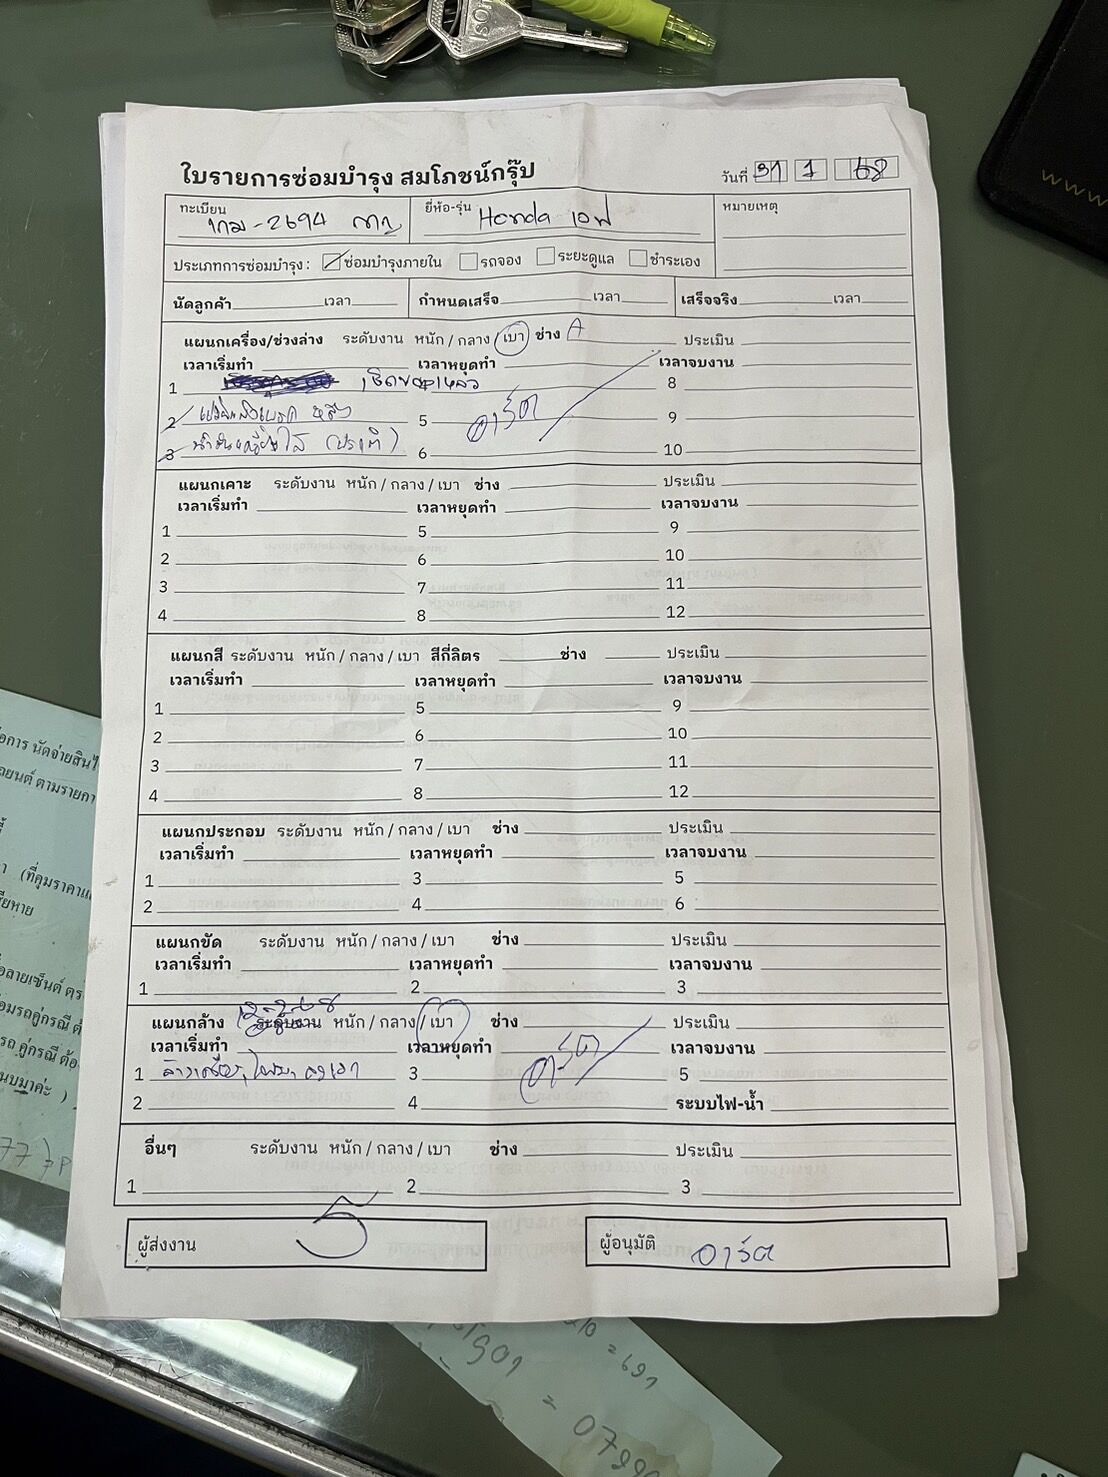 ใบรายการซ่อมบำรุง สมโภชน์กรุ๊ป
วันที่ 31 7 68
ทะเบียน 1กม-2694 กาญ
ยี่ห้อ-รุ่น Honda เอฟ
หมายเหตุ
ประเภทการซ่อมบำรุง : ซ่อมบำรุงภายใน รถจอง ระยะดูแล ชำระเอง
นัดลูกค้า เวลา กำหนดเสร็จ เวลา เสร็จจริง เวลา
แผนกเครื่อง/ช่วงล่าง ระดับงาน หนัก / กลาง / เบา ช่าง A ประเมิน
เวลาเริ่มทำ เวลาหยุดทำ เวลาจบงาน
1 เช็ดของเหลว 8
2 5 อาร์ต 9
3 6 10
แผนกเคาะ ระดับงาน หนัก / กลาง / เบา ช่าง ประเมิน
เวลาเริ่มทำ เวลาหยุดทำ เวลาจบงาน
1 5 9
2 6 10
3 7 11
4 8 12
แผนกสี ระดับงาน หนัก / กลาง / เบา สีกี่ลิตร ช่าง ประเมิน
เวลาเริ่มทำ เวลาหยุดทำ เวลาจบงาน
1 5 9
2 6 10
3 7 11
4 8 12
แผนกประกอบ ระดับงาน หนัก / กลาง / เบา ช่าง ประเมิน
เวลาเริ่มทำ เวลาหยุดทำ เวลาจบงาน
1 3 5
2 4 6
แผนกขัด ระดับงาน หนัก / กลาง / เบา ช่าง ประเมิน
เวลาเริ่มทำ เวลาหยุดทำ เวลาจบงาน
1 2 3
แผนกล้าง ระดับงาน หนัก / กลาง / เบา ช่าง ประเมิน
เวลาเริ่มทำ เวลาหยุดทำ อาร์ต เวลาจบงาน
1 3 5
2 4 ระบบไฟ-น้ำ
อื่นๆ ระดับงาน หนัก / กลาง / เบา ช่าง ประเมิน
1 2 3
ผู้ส่งงาน
ผู้อนุมัติ อาร์ต